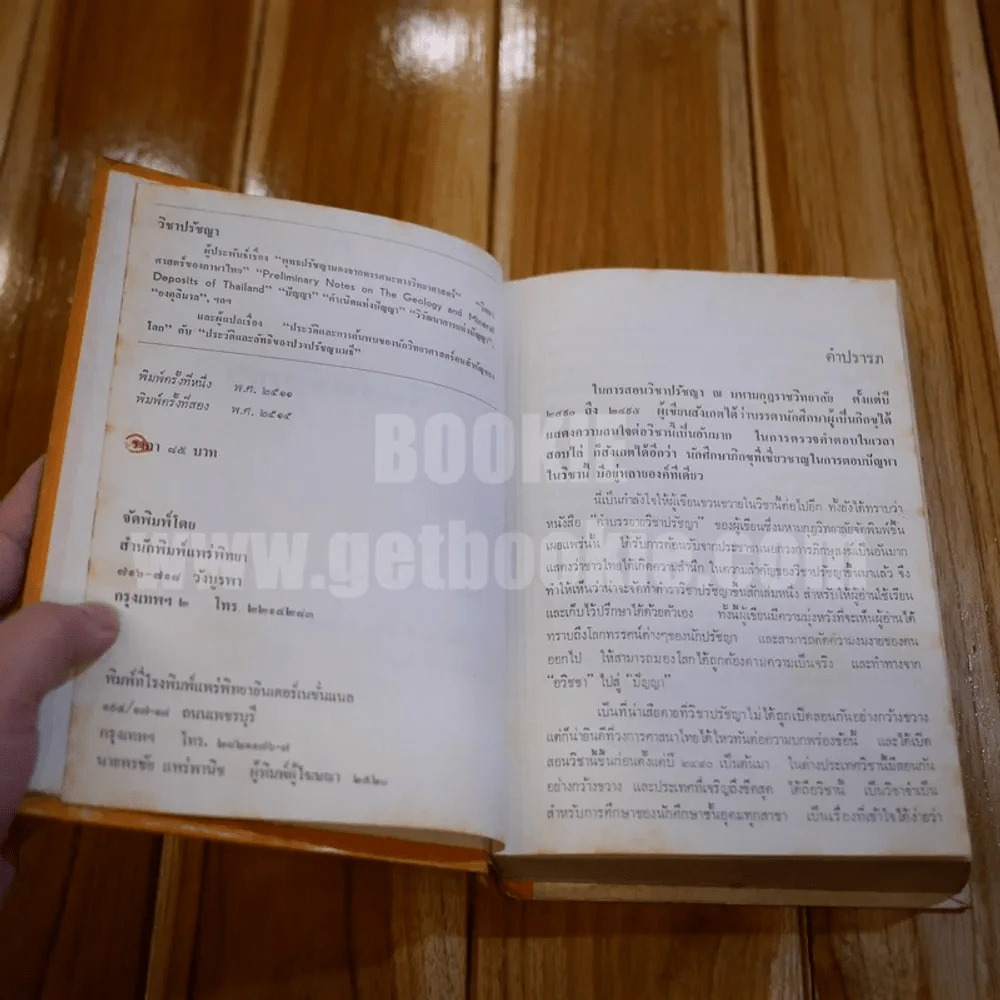 วิชาปรัชญา
ผู้ประพันธ์เรื่อง "พุทธปรัชญามองจากทรรศนะทางวิทยาศาสตร์" "วิทยา
ศาสตร์ของภาษาไทย" "Preliminary Notes on The Geology and Mineral
Deposits of Thailand" "ปัญญา" "กำเนิดแห่งปัญญา" "วิวัฒนาการแห่งปัญญา",
"องคุลิมาล", ฯลฯ
และผู้แปลเรื่อง "ประวัติและการค้นพบของนักวิทยาศาสตร์คนสำคัญของ
โลก" กับ "ประวัติและลัทธิของปวงปรัชญาเมธี"
พิมพ์ครั้งที่หนึ่ง พ.ศ. ๒๕๑๑
พิมพ์ครั้งที่สอง พ.ศ. ๒๕๑๕
ราคา ๘๕ บาท
จัดพิมพ์โดย
สำนักพิมพ์แพร่พิทยา
๗๑๖-๗๑๘ วังบูรพา
กรุงเทพฯ ๒ โทร. ๒๒๑๔๒๘๓
พิมพ์ที่โรงพิมพ์แพร่พิทยาอินเตอร์เนชั่นแนล
ถนนเพชรบุรี
กรุงเทพฯ โทร.
นายพรชัย แพร่พานิช ผู้พิมพ์ผู้โฆษณา ๒๕๒๐
คำปรารภ
ในการสอนวิชาปรัชญา ณ มหามกุฎราชวิทยาลัย ตั้งแต่ปี
๒๔๙๐ ถึง ๒๔๙๕ ผู้เขียนสังเกตได้ว่าบรรดานักศึกษาผู้เป็นภิกขุได้
แสดงความสนใจต่อวิชานี้เป็นอันมาก ในการตรวจคำตอบในเวลา
สอบไล่ ก็สังเกตได้อีกว่า นักศึกษาภิกขุที่เชี่ยวชาญในการตอบปัญหา
ในวิชานี้ มีอยู่หลายองค์ทีเดียว
นี่เป็นกำลังใจให้ผู้เขียนขวนขวายในวิชานี้ต่อไปอีก ทั้งยังได้ทราบว่า
หนังสือ "คำบรรยายวิชาปรัชญา" ของผู้เขียนซึ่งมหามกุฎวิทยาลัยจัดพิมพ์ขึ้น
เผยแพร่นั้น ได้รับการต้อนรับจากประชาชนนอกวงการภิกษุสงฆ์เป็นอันมาก
แสดงว่าชาวไทยได้เกิดความสำนึก ในความสำคัญของวิชาปรัชญาขึ้นมาแล้ว จึง
ทำให้เห็นว่าน่าจะจัดทำตำราวิชาปรัชญาขึ้นสักเล่มหนึ่ง สำหรับให้ผู้อ่านใช้เรียน
และเก็บไว้ปรึกษาได้ด้วยตัวเอง ทั้งนี้ผู้เขียนมีความมุ่งหวังที่จะเห็นผู้อ่านได้
ทราบถึงโลกทรรศน์ต่างๆของนักปรัชญา และสามารถตัดความงมงายของตน
ออกไป ให้สามารถมองโลกได้ถูกต้องตามความเป็นจริง และทำทางจาก
"อวิชชา" ไปสู่ "ปัญญา"
เป็นที่น่าเสียดายที่วิชาปรัชญาไม่ได้ถูกเปิดสอนกันอย่างกว้างขวาง
แต่ก็น่ายินดีที่วงการศาสนาไทยได้ไหวทันต่อความบกพร่องข้อนี้ และได้เปิด
สอนวิชานี้ขึ้นก่อนตั้งแต่ปี ๒๔๙๐ เป็นต้นมา ในต่างประเทศวิชานี้มีสอนกัน
อย่างกว้างขวาง และประเทศที่เจริญถึงขีดสุด ได้ถือวิชานี้ เป็นวิชาจำเป็น
สำหรับการศึกษาของนักศึกษาชั้นอุดมทุกสาขา เป็นเรื่องที่เข้าใจได้ง่ายว่า
BOOKIE
www.getbookie.com